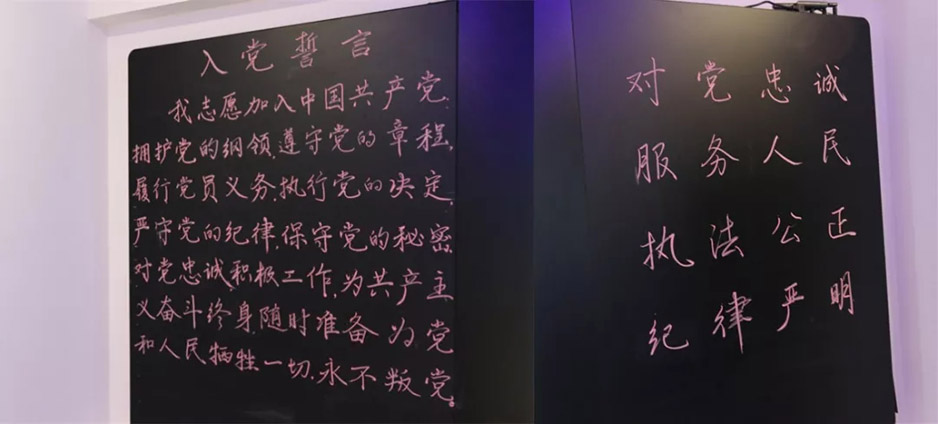 入党誓言
我志愿加入中国共产党,
拥护党的纲领,遵守党的章程,
履行党员义务,执行党的决定,
严守党的纪律,保守党的秘密
对党忠诚积极工作,为共产主
义奋斗终身,随时准备为党
和人民牺牲一切,永不叛党。
对党忠诚
服务人民
执法公正
纪律严明